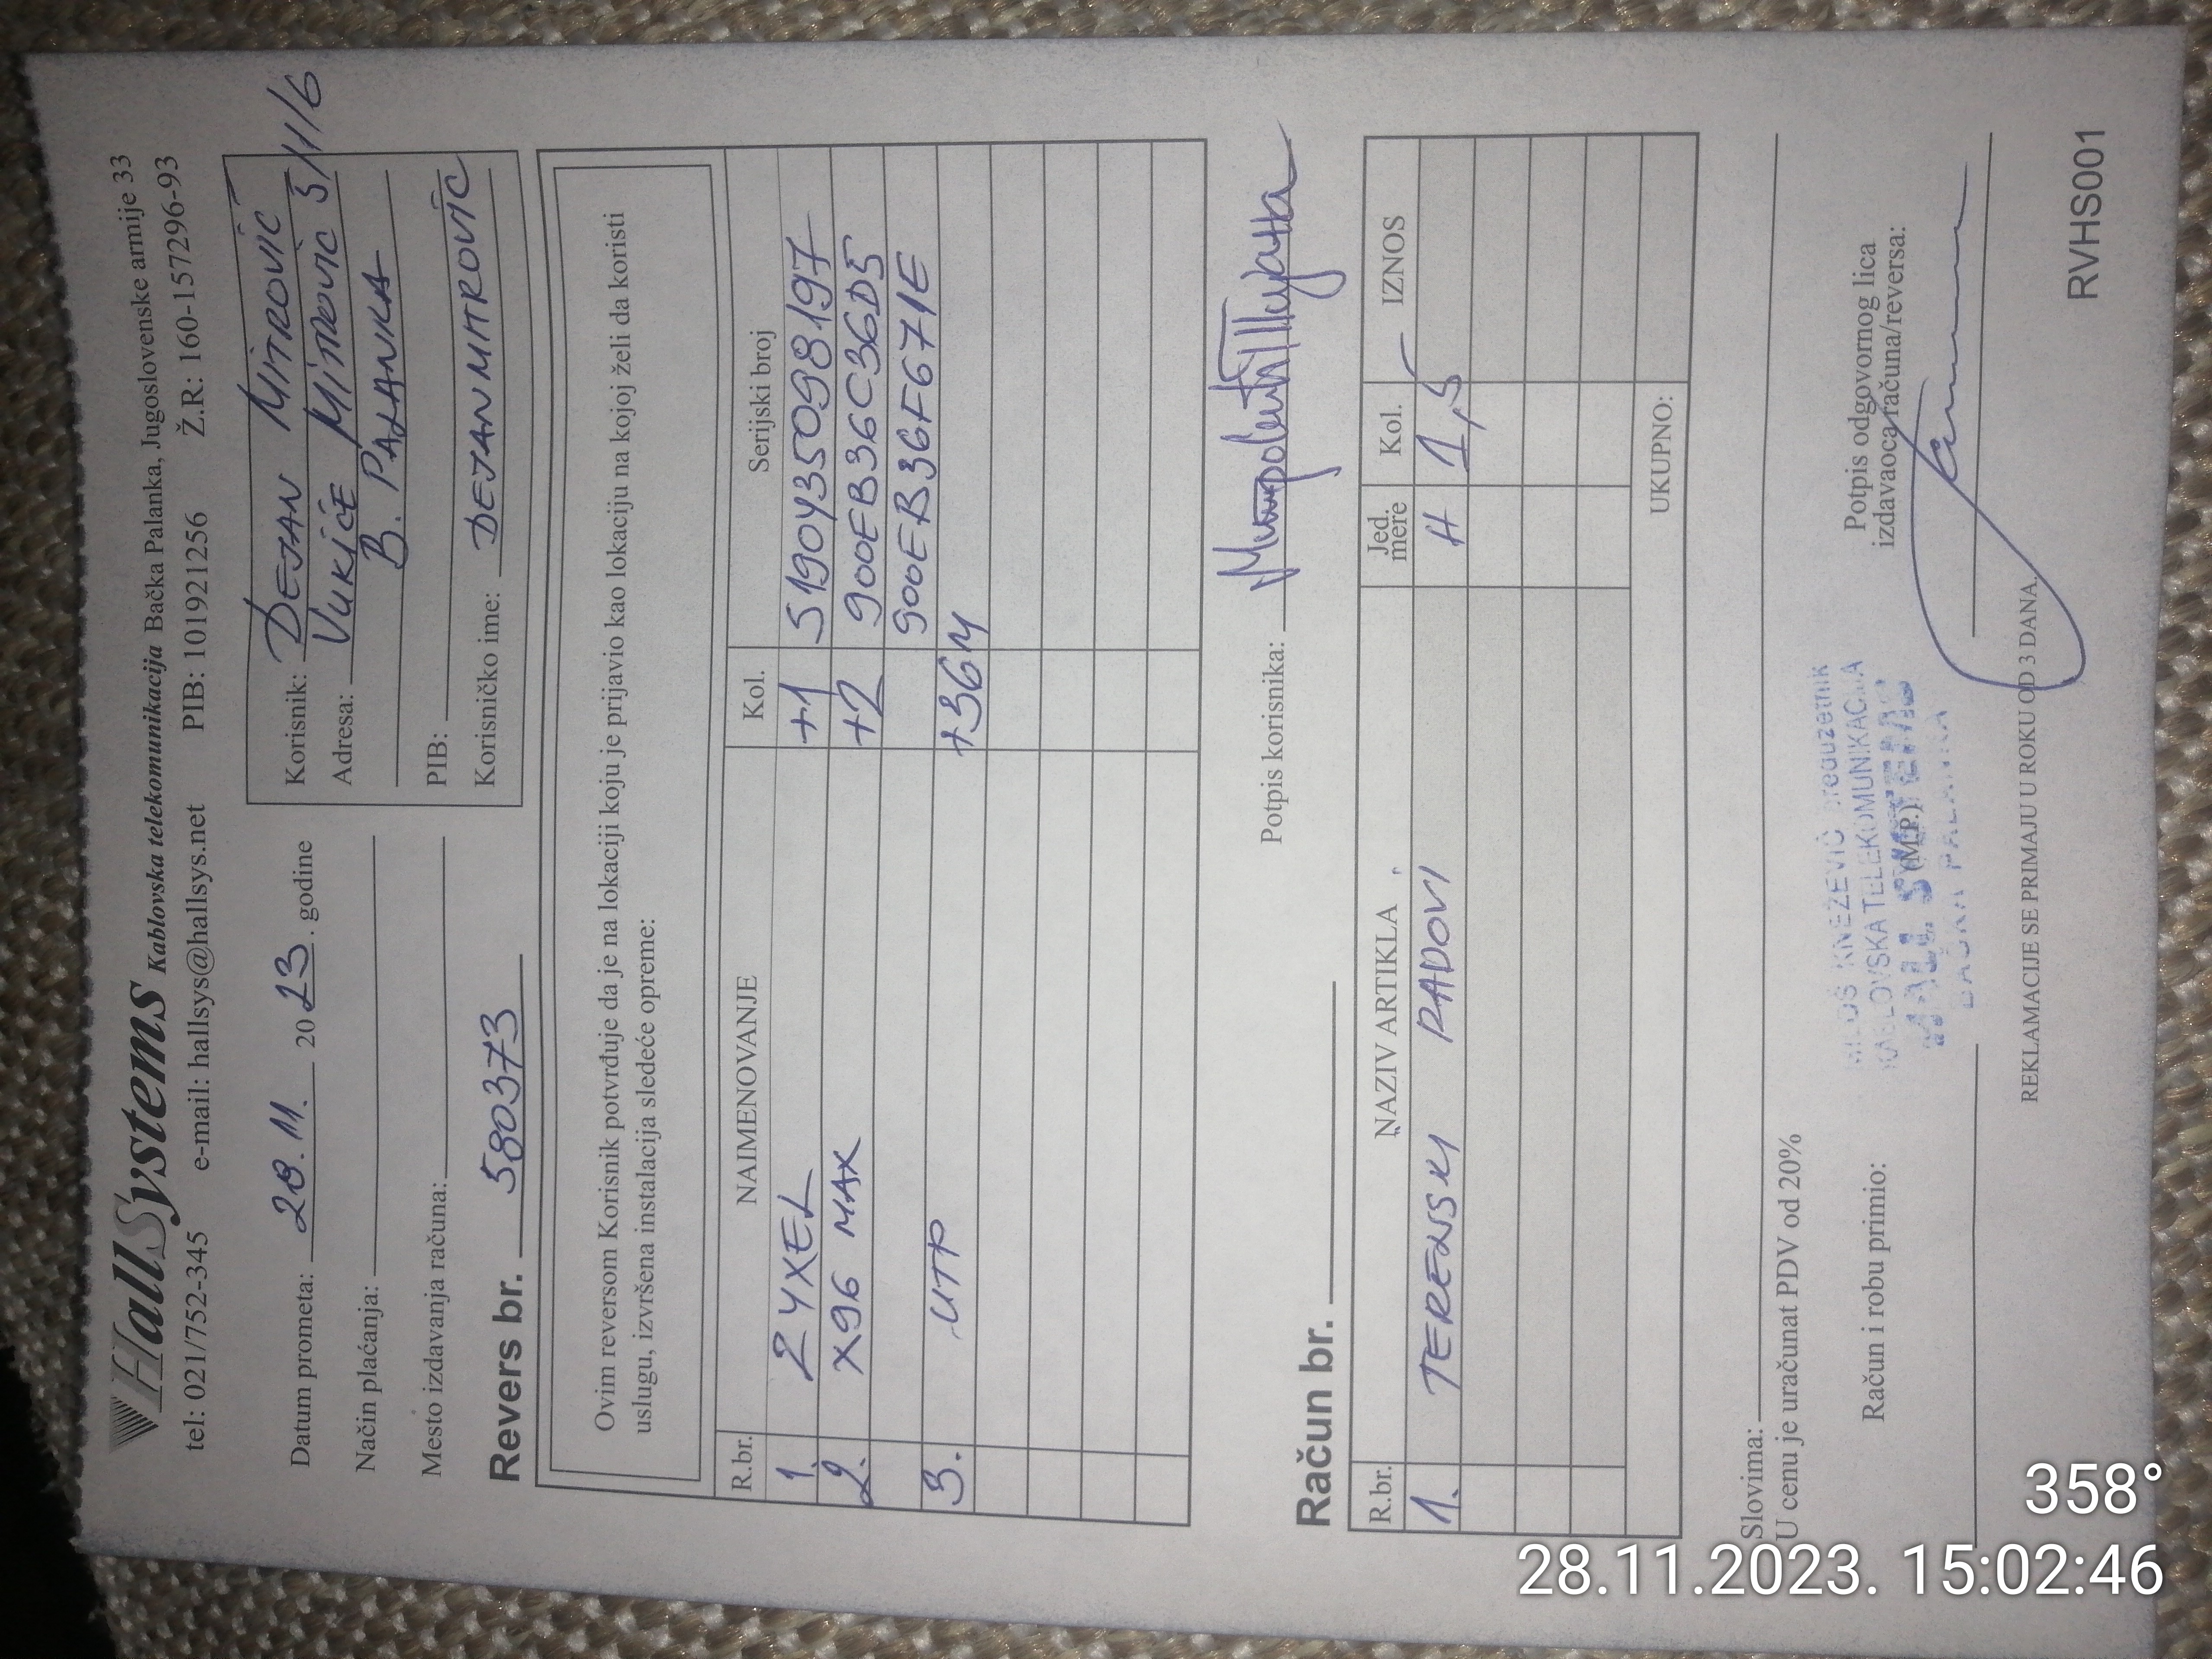 HallSystems Kablovska telekomunikacija Bačka Palanka, Jugoslovenske armije 33
tel: 021/752-345 e-mail: hallsys@hallsys.net PIB: 101921256 Ž.R: 160-157296-93
Datum prometa: 28.11. 2023. godine
Način plaćanja:
Mesto izdavanja računa:
Korisnik: DEJAN MITROVIĆ
Adresa: VUKIĆE MITROVIĆ 3/1/6
B. PALANKA
PIB:
Korisničko ime: DEJANMITROVIC
Revers br. 580373
Ovim reversom Korisnik potvrđuje da je na lokaciji koju je prijavio kao lokaciju na kojoj želi da koristi
uslugu, izvršena instalacija sledeće opreme:
R.br. NAIMENOVANJE Kol. Serijski broj
1. ZYXEL +1 S190Y35098197
2. X96 MAX +2 900EB36C36D5
900EB36F671E
3. UTP +36M
Potpis korisnika:
Račun br.
R.br. NAZIV ARTIKLA Jed. mere Kol. IZNOS
1. TERENSKI RADOVI H 1,5 /
UKUPNO:
Slovima:
U cenu je uračunat PDV od 20%
Račun i robu primio:
MILOŠ KNEŽEVIĆ preduzetnik
KABLOVSKA TELEKOMUNIKACIJA
HALL SYSTEMS
BAČKA PALANKA
(M.P.)
Potpis odgovornog lica
izdavaoca računa/reversa:
REKLAMACIJE SE PRIMAJU U ROKU OD 3 DANA.
RVHS001
358°
28.11.2023. 15:02:46